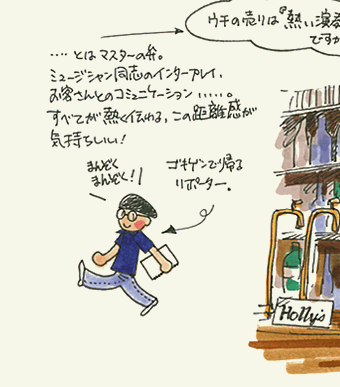 ウチの売りは『熱い演奏
ですか
‥‥とはマスターの弁。
ミュージシャン同志のインタープレイ、
お客さんとのコミュニケーション‥‥‥。
すべてが熱く伝わる、この距離感が
気持ちいい!
まんぞく
まんぞく!!
ゴキゲンで帰る
リポーター。
Holly's